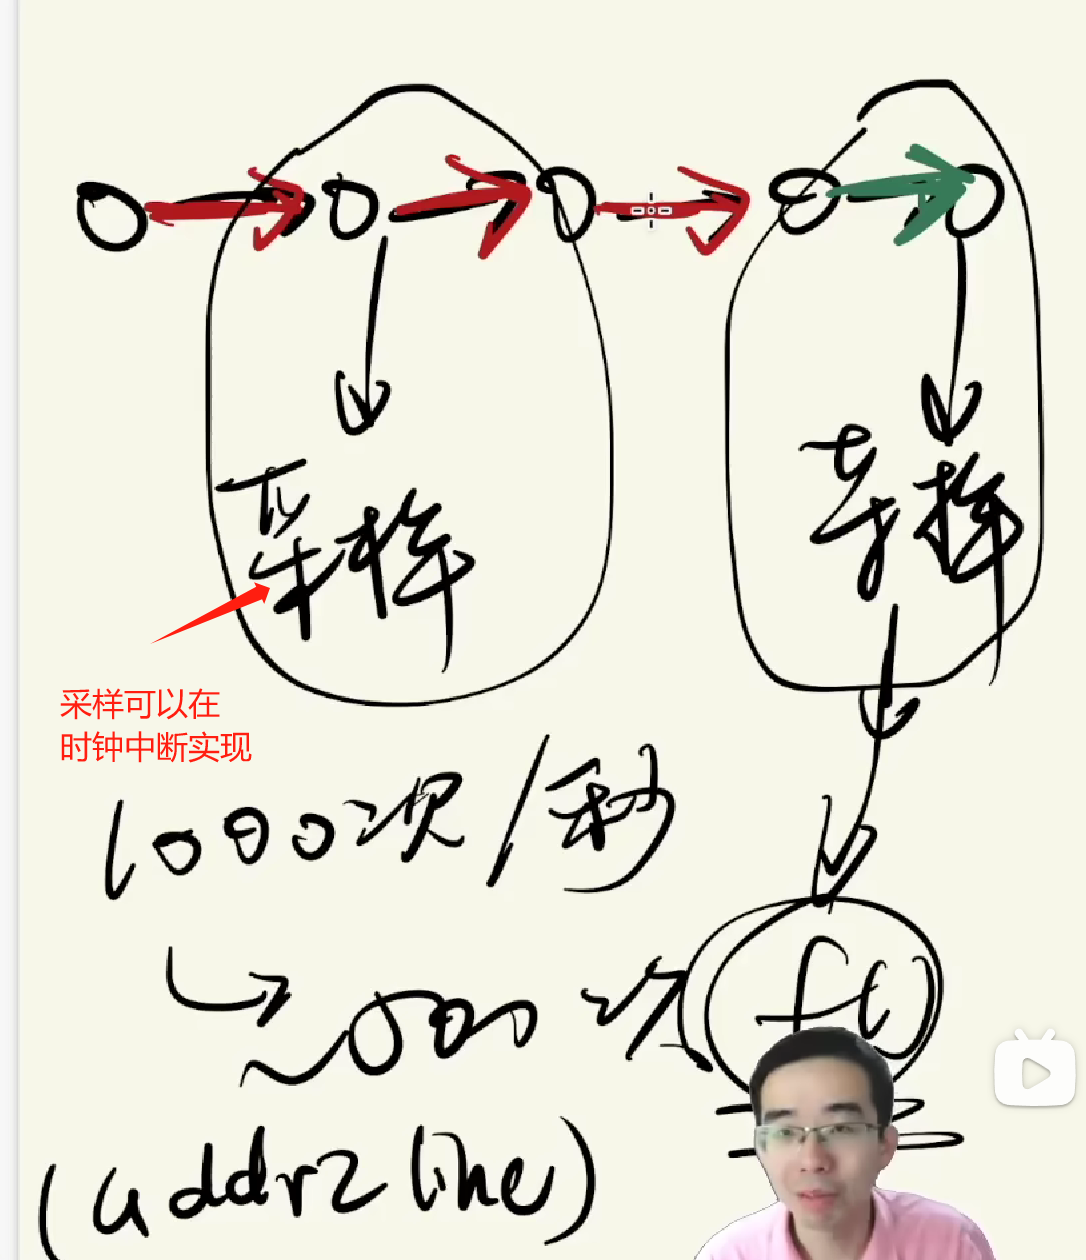 采样
采样
采样可以在
时钟中断实现
1000次/秒
~500次
f()
(addr2line)